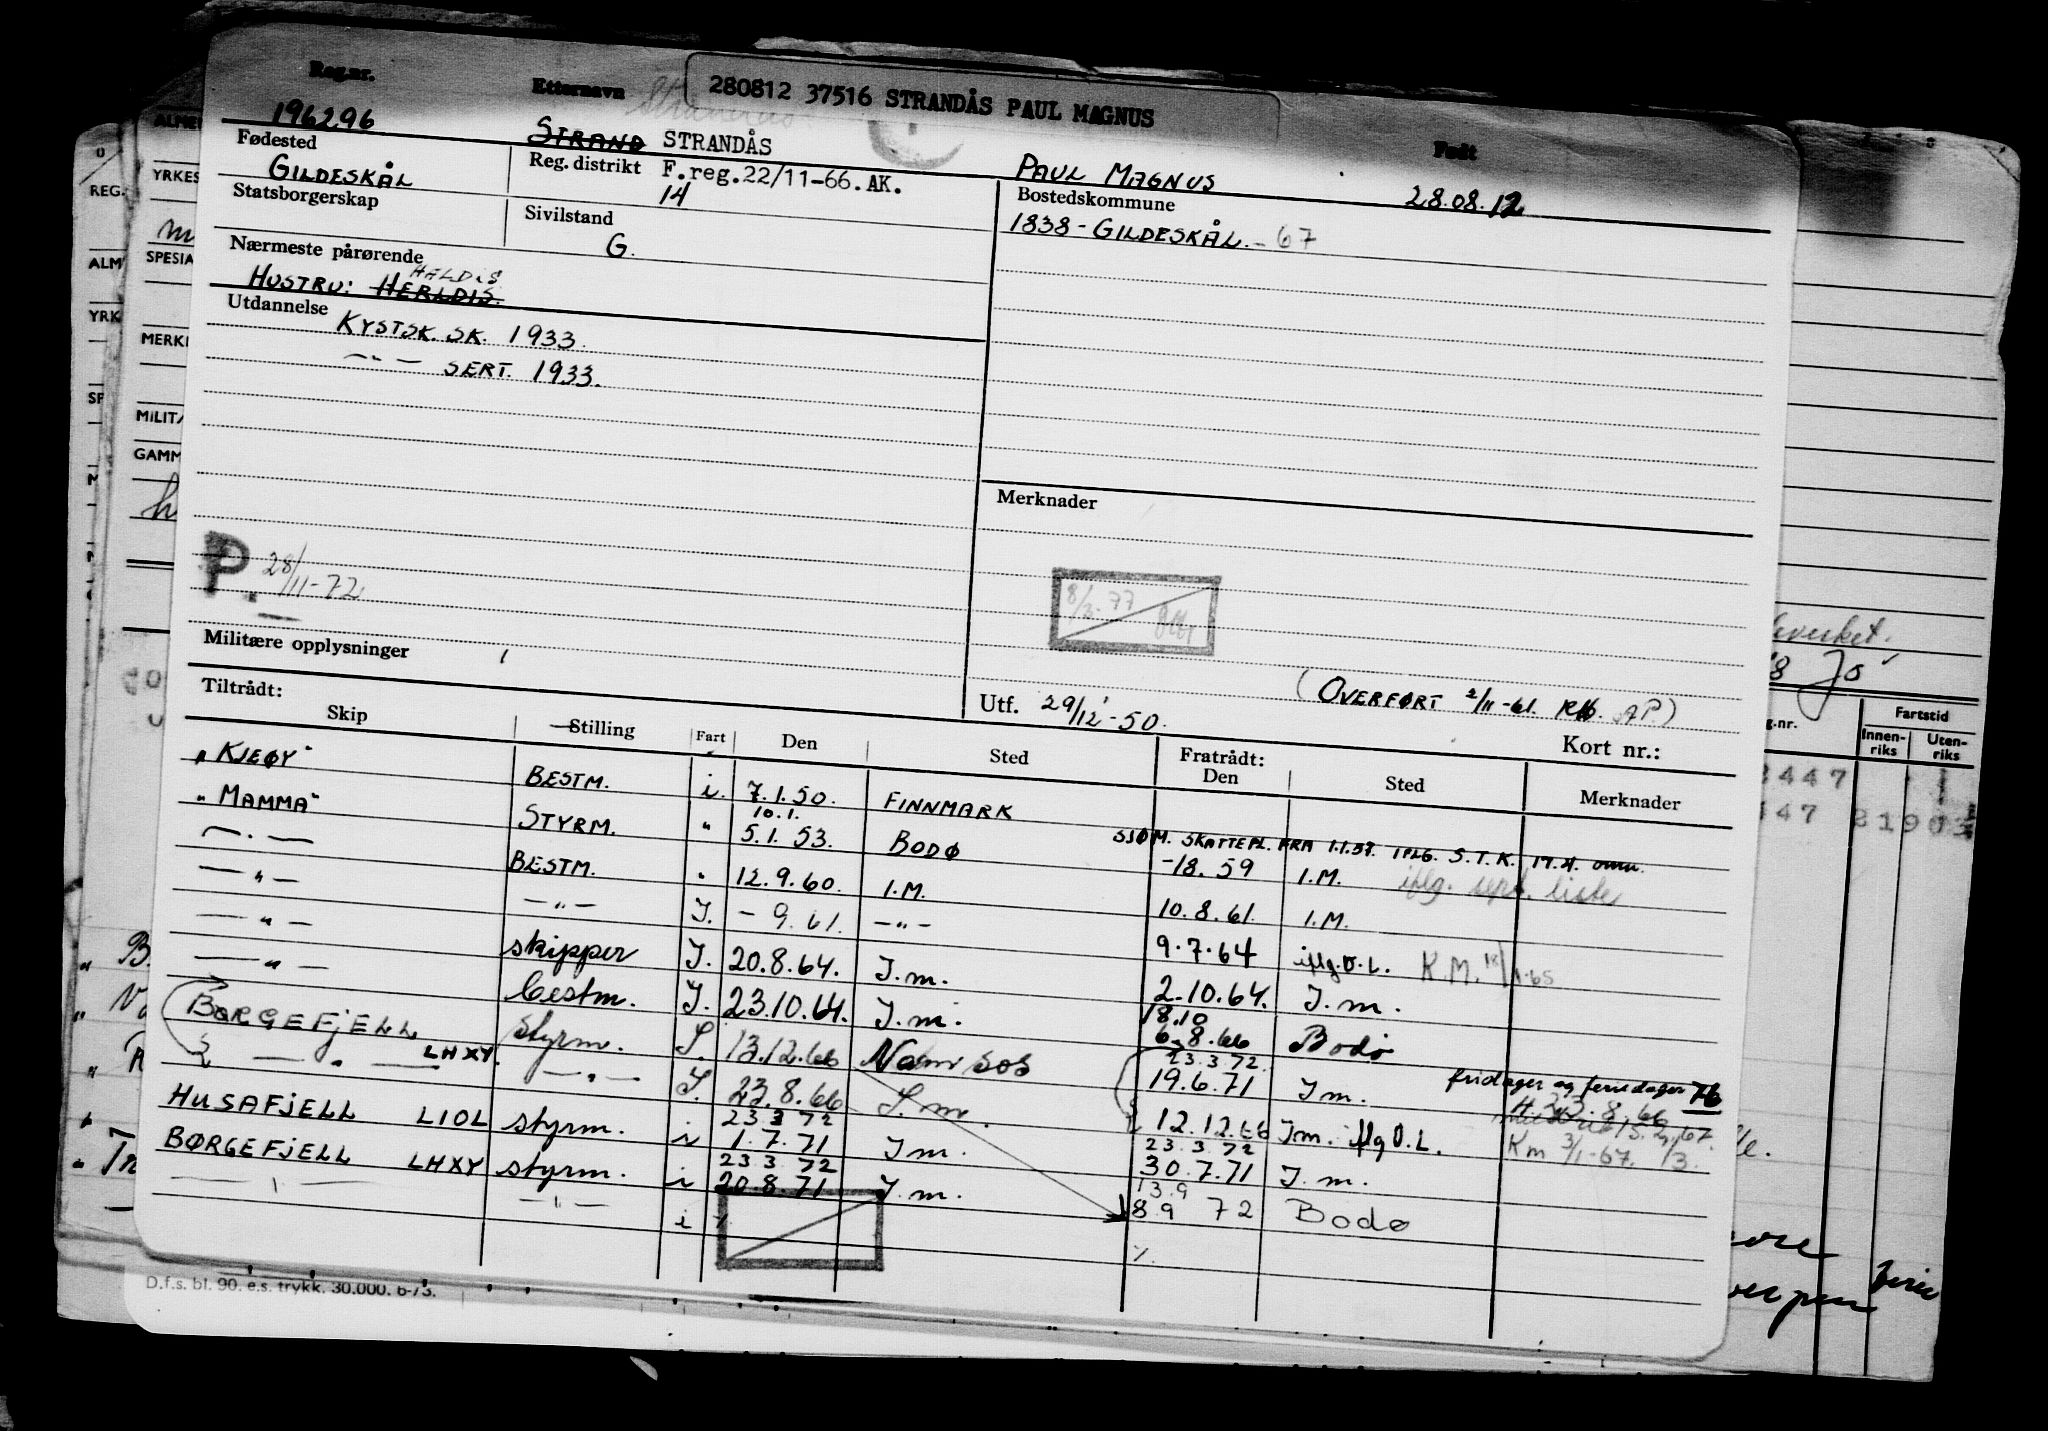 280812 37516 STRANDÅS PAUL MAGNUS
Reg.nr. Etternavn Født
196296 STRAND STRANDÅS PAUL MAGNUS 28.08.12
Fødested Reg. distrikt F.reg.22/11-66.AK. Bostedskommune
GILDESKÅL 14 1838-GILDESKÅL.-67
Statsborgerskap Sivilstand
G.
Nærmeste pårørende
HALDIS
HUSTRU: HERLDIS.
Utdannelse
KYSTSK. SK. 1933.
—"— SERT. 1933.
Merknader
P. 28/11-72
8/3-77
Militære opplysninger
(OVERFØRT 2/11-61. AP)
Tiltrådt: Utf. 29/12-50. Kort nr.:
Skip Stilling Fart Den Sted Fratrådt: Den Sted Merknader
"KJEØY" BESTM. i. 7.1.50. FINNMARK
10.1.
"MAMMA" STYRM. " 5.1.53. BODØ SJØM. SKATTEPL. FRA 1.1.57. IFLG. S.T.K. 17.4.
—"— BESTM. " 12.9.60. I.M. -18.59 I.M. iflg. sept. liste
—"— —"— I. -9.61. —"— 10.8.61. I.M.
—"— skipper I. 20.8.64. I.m. 9.7.64 iflg.O.L. K.M. 18/1-65
—"— bestm. I. 23.10.64. I.m. 2.10.64. I.m.
18.10
BØRGEFJELL styrm. I. 13.12.66 Namsos 6.8.66 Bodø
23.3.72.
—"— LHXY. —"— I. 23.8.66 I.m. 19.6.71 I.m. fridager og feriedager 76
23 3 72
HUSAFJELL LIOL styrm. i 1.7.71 I.m. 12.12.66 I.m. iflg O.L. Km 3/1-67. 1/3.
23.3 72 23.3.72
BØRGEFJELL LHXY styrm. i 20.8.71 I.m. 30.7.71 I.m.
13.9
—"— —"— i 8 9 72 Bodø
D.f.s. bl. 90. e.s. trykk. 30.000. 6-73.
REG.
YRKES
SPESIA
MERKI
MILITÆ
GAMM
g.nr. Fartstid
Innen-riks Uten-riks